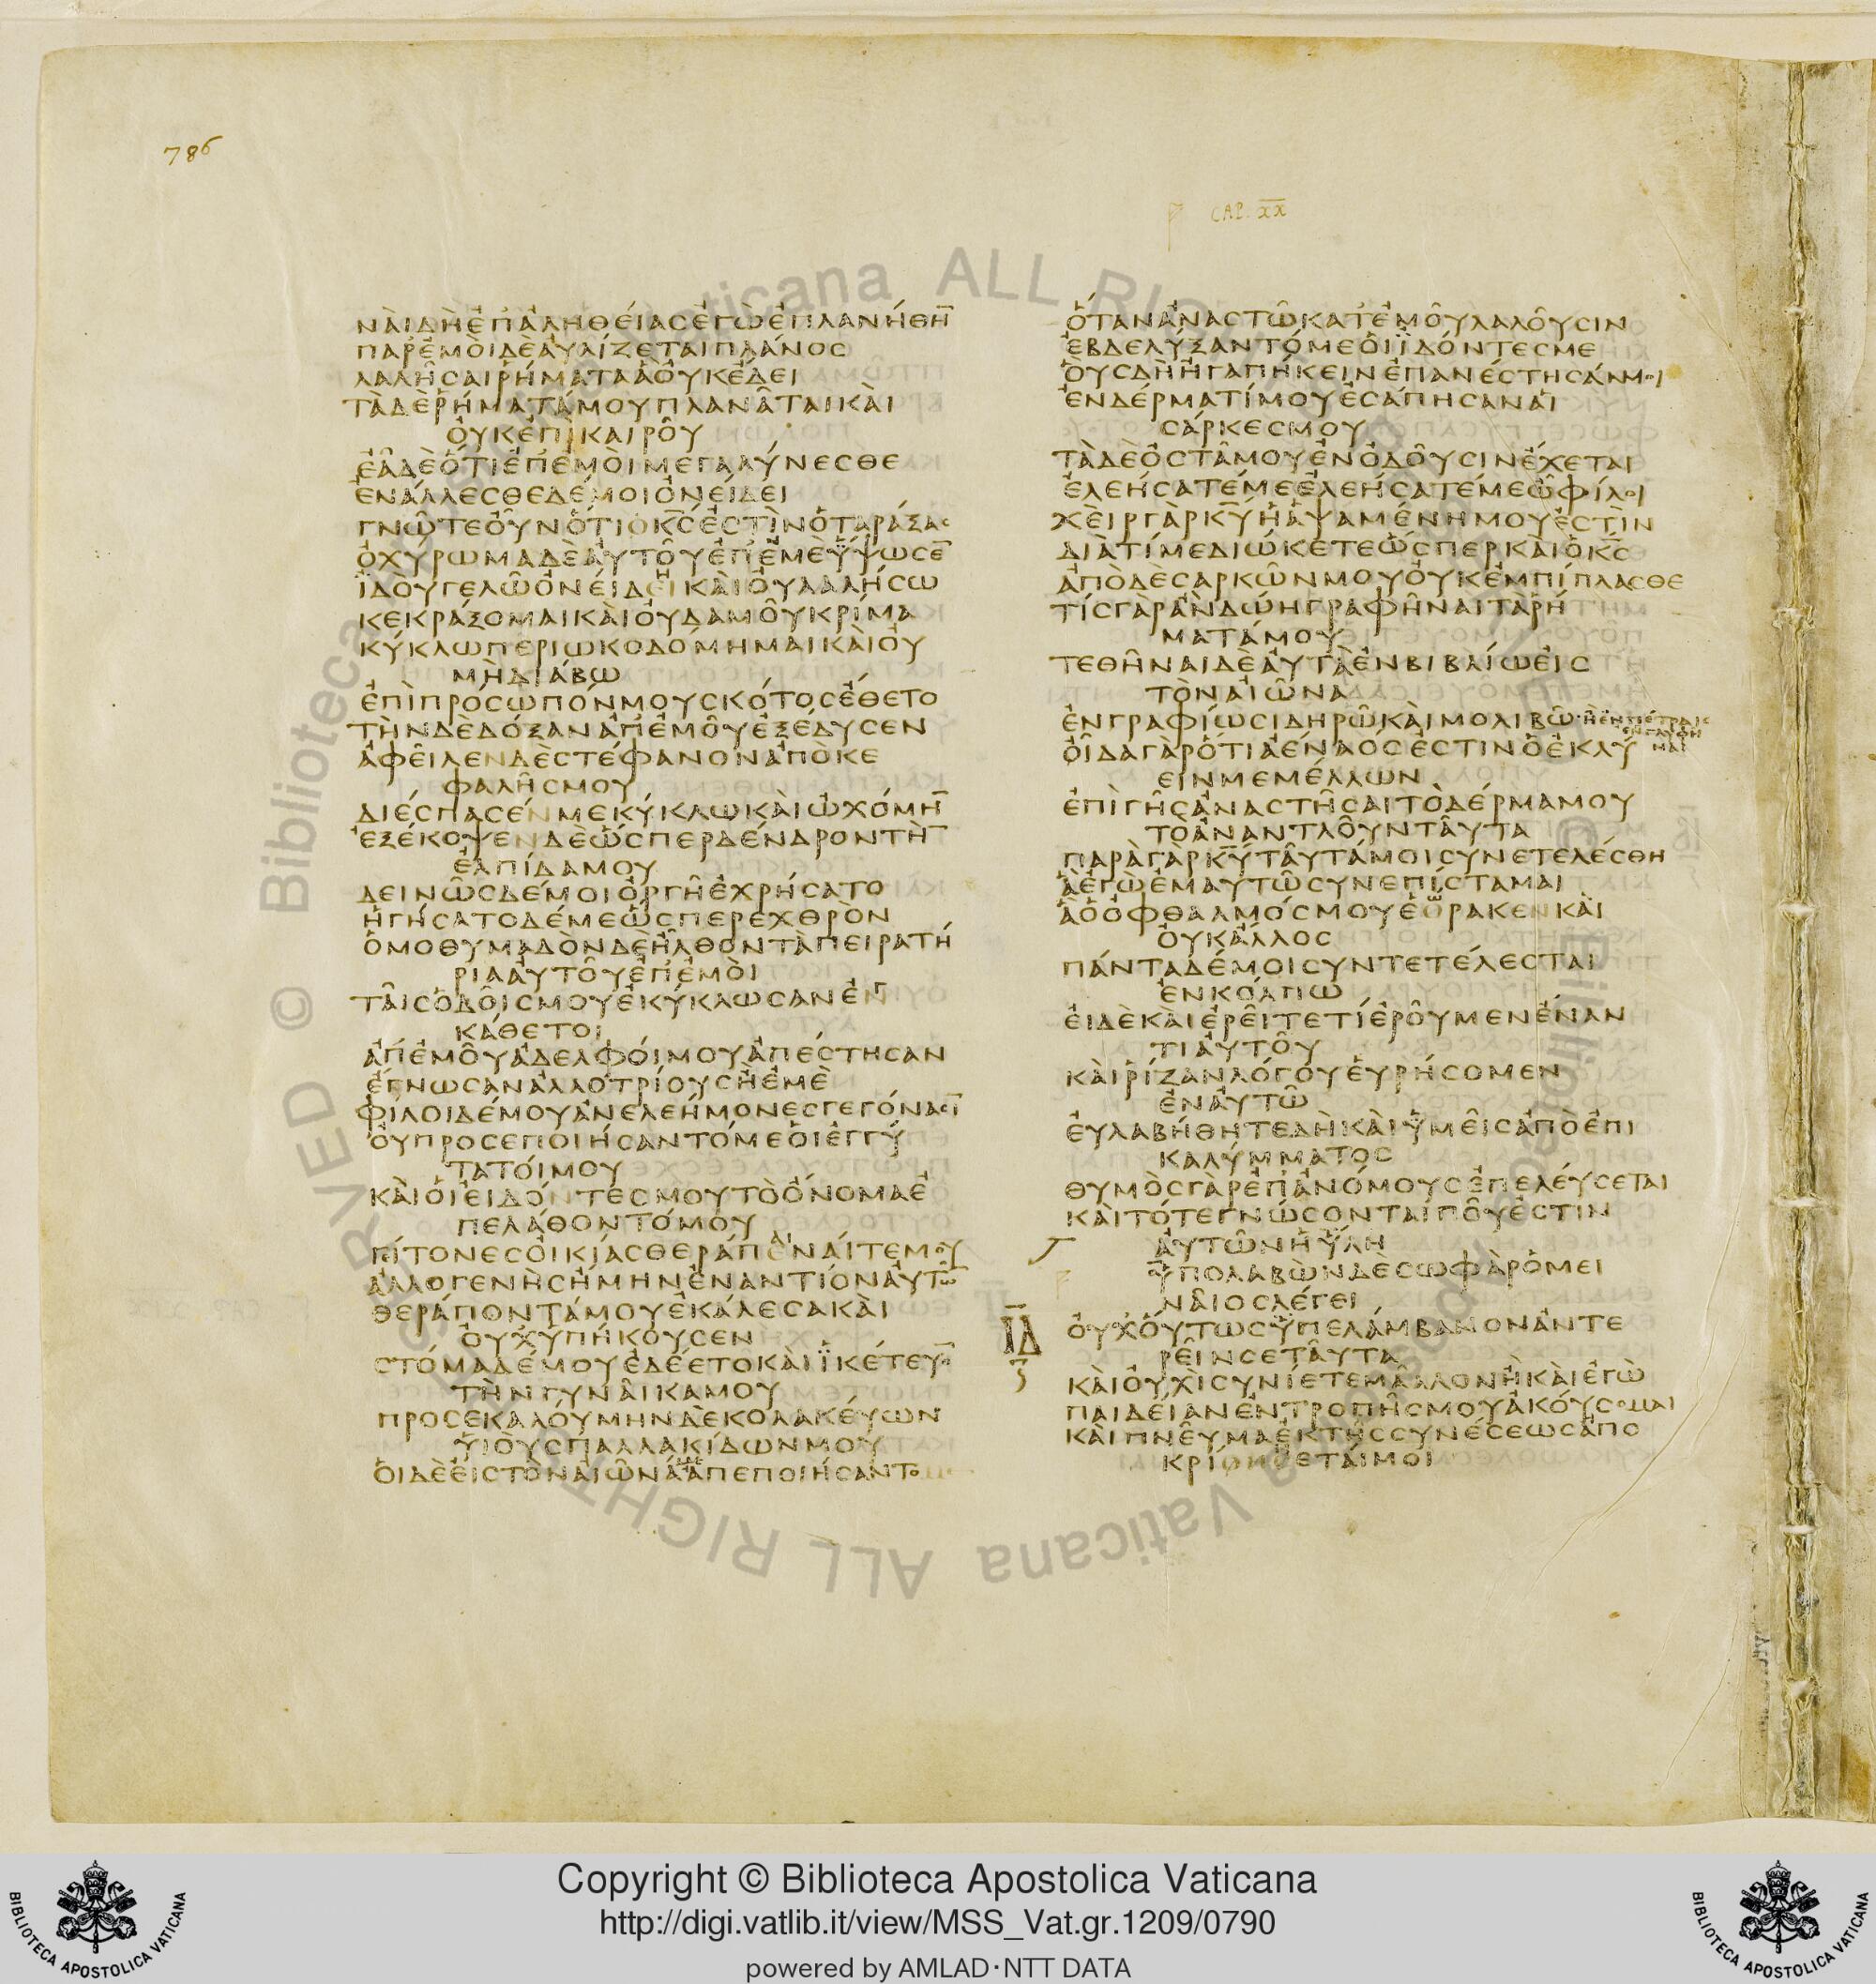 786
CAP. XX
ΝΑΙΔΗΕΠΑΛΗΘΕΙΑCΕΓΩΕΠΛΑΝΗΘΗ̅
ΠΑΡΕΜΟΙΔΕΑΥΛΙΖΕΤΑΙΠΛΑΝΟC
ΛΑΛΗCΑΙΡΗΜΑΤΑΑΟΥΚΕΔΕΙ
ΤΑΔΕΡΗΜΑΤΑΜΟΥΠΛΑΝΑΤΑΙΚΑΙ
ΟΥΚΕΠΙΚΑΙΡΟΥ
ΕΑΔΕΟΤΙΕΠΕΜΟΙΜΕΓΑΛΥΝΕCΘΕ
ΕΝΑΛΛΕCΘΕΔΕΜΟΙΟΝΕΙΔΕΙ
ΓΝΩΤΕΟΥΝΟΤΙΟΚ̅C̅ΕCΤΙΝΟΤΑΡΑΞΑC
ΟΧΥΡΩΜΑΔΕΑΥΤΟΥΕΠΕΜΕΫΨΩCΕ̅
ΪΔΟΥΓΕΛΩΟΝΕΙΔΕΙΚΑΙΟΥΛΑΛΗCΩ
ΚΕΚΡΑΞΟΜΑΙΚΑΙΟΥΔΑΜΟΥΚΡΙΜΑ
ΚΥΚΛΩΠΕΡΙΩΚΟΔΟΜΗΜΑΙΚΑΙΟΥ
ΜΗΔΙΑΒΩ
ΕΠΙΠΡΟCΩΠΟΝΜΟΥCΚΟΤΟCΕΘΕΤΟ
ΤΗΝΔΕΔΟΞΑΝΑΠΕΜΟΥΕΞΕΔΥCΕΝ
ΑΦΕΙΛΕΝΔΕCΤΕΦΑΝΟΝΑΠΟΚΕ
ΦΑΛΗCΜΟΥ
ΔΙΕCΠΑCΕΝΜΕΚΥΚΛΩΚΑΙΩΧΟΜΗ̅
ΕΞΕΚΟΨΕΝΔΕΩCΠΕΡΔΕΝΔΡΟΝΤΗ̅
ΕΛΠΙΔΑΜΟΥ
ΔΕΙΝΩCΔΕΜΟΙΟΡΓΗΕΧΡΗCΑΤΟ
ΗΓΗCΑΤΟΔΕΜΕΩCΠΕΡΕΧΘΡΟΝ
ΟΜΟΘΥΜΑΔΟΝΔΕΗΛΘΟΝΤΑΠΕΙΡΑΤΗ
ΡΙΑΑΥΤΟΥΕΠΕΜΟΙ
ΤΑΙCΟΔΟΙCΜΟΥΕΚΥΚΛΩCΑΝΕΝ
ΚΑΘΕΤΟΙ
ΑΠΕΜΟΥΑΔΕΛΦΟΙΜΟΥΑΠΕCΤΗCΑΝ
ΕΓΝΩCΑΝΑΛΛΟΤΡΙΟΥCΗΕΜΕ
ΦΙΛΟΙΔΕΜΟΥΑΝΕΛΕΗΜΟΝΕCΓΕΓΟΝΑCΙ̅
ΟΥΠΡΟCΕΠΟΙΗCΑΝΤΟΜΕΟΙΕΓΓΥ
ΤΑΤΟΙΜΟΥ
ΚΑΙΟΙΕΙΔΟΝΤΕCΜΟΥΤΟΟΝΟΜΑΕ
ΠΕΛΑΘΟΝΤΟΜΟΥ
ΓΙΤΟΝΕCΟΙΚΙΑCΘΕΡΑΠΕΝΑΙΤΕΜΟΥ
ΑΛΛΟΓΕΝΗCΗΜΗΝΕΝΑΝΤΙΟΝΑΥΤΩ̅
ΘΕΡΑΠΟΝΤΑΜΟΥΕΚΑΛΕCΑΚΑΙ
ΟΥΧΥΠΗΚΟΥCΕΝ
CΤΟΜΑΔΕΜΟΥΕΔΕΕΤΟΚΑΙΪΚΕΤΕΥΟ̅
ΤΗΝΓΥΝΑΙΚΑΜΟΥ
ΠΡΟCΕΚΑΛΟΥΜΗΝΔΕΚΟΛΑΚΕΥΩΝ
ΥΙΟΥCΠΑΛΛΑΚΙΔΩΝΜΟΥ
ΟΙΔΕΕΙCΤΟΝΑΙΩΝΑΑΠΕΠΟΙΗCΑΝΤΟ
ΟΤΑΝΑΝΑCΤΩΚΑΤΕΜΟΥΛΑΛΟΥCΙΝ
ΕΒΔΕΛΥΞΑΝΤΟΜΕΟΙΪΔΟΝΤΕCΜΕ
ΟΥCΔΗΗΓΑΠΗΚΕΙΝΕΠΑΝΕCΤΗCΑΝΜΟΙ
ΕΝΔΕΡΜΑΤΙΜΟΥΕCΑΠΗCΑΝΑΙ
CΑΡΚΕCΜΟΥ
ΤΑΔΕΟCΤΑΜΟΥΕΝΟΔΟΥCΙΝΕΧΕΤΑΙ
ΕΛΕΗCΑΤΕΜΕΕΛΕΗCΑΤΕΜΕΩΦΙΛΟΙ
ΧΕΙΡΓΑΡΚ̅Υ̅ΗΑΨΑΜΕΝΗΜΟΥΕCΤΙΝ
ΔΙΑΤΙΜΕΔΙΩΚΕΤΕΩCΠΕΡΚΑΙΟΚ̅C̅
ΑΠΟΔΕCΑΡΚΩΝΜΟΥΟΥΚΕΜΠΙΠΛΑCΘΕ
ΤΙCΓΑΡΑΝΔΩΗΓΡΑΦΗΝΑΙΤΑΡΗ
ΜΑΤΑΜΟΥ
ΤΕΘΗΝΑΙΔΕΑΥΤΑΕΝΒΙΒΛΙΩΕΙC
ΤΟΝΑΙΩΝΑ
ΕΝΓΡΑΦΙΩCΙΔΗΡΩΚΑΙΜΟΛΙΒΩ·ΗΕΝΠΕΤΡΑΙC
ΕΝΓΛΥΦΗ
ΝΑΙ
ΟΙΔΑΓΑΡΟΤΙΑΕΝΑΟCΕCΤΙΝΟΕΚΛΥ
ΕΙΝΜΕΜΕΛΛΩΝ
ΕΠΙΓΗCΑΝΑCΤΗCΑΙΤΟΔΕΡΜΑΜΟΥ
ΤΟΑΝΑΝΤΛΟΥΝΤΑΥΤΑ
ΠΑΡΑΓΑΡΚ̅Υ̅ΤΑΥΤΑΜΟΙCΥΝΕΤΕΛΕCΘΗ
ΑΕΓΩΕΜΑΥΤΩCΥΝΕΠΙCΤΑΜΑΙ
ΑΟΟΦΘΑΛΜΟCΜΟΥΕΟΡΑΚΕΝΚΑΙ
ΟΥΚΑΛΛΟC
ΠΑΝΤΑΔΕΜΟΙCΥΝΤΕΤΕΛΕCΤΑΙ
ΕΝΚΟΛΠΩ
ΕΙΔΕΚΑΙΕΡΕΙΤΕΤΙΕΡΟΥΜΕΝΕΝΑΝ
ΤΙΑΥΤΟΥ
ΚΑΙΡΙΖΑΝΛΟΓΟΥΕΥΡΗCΟΜΕΝ
ΕΝΑΥΤΩ
ΕΥΛΑΒΗΘΗΤΕΔΗΚΑΙΫΜΕΙCΑΠΟΕΠΙ
ΚΑΛΥΜΜΑΤΟC
ΘΥΜΟCΓΑΡΕΠΑΝΟΜΟΥCΕΠΕΛΕΥCΕΤΑΙ
ΚΑΙΤΟΤΕΓΝΩCΟΝΤΑΙΠΟΥΕCΤΙΝ
ΑΥΤΩΝΗΫΛΗ
ΫΠΟΛΑΒΩΝΔΕCΩΦΑΡΟΜΕΙ
ΝΑΙΟCΛΕΓΕΙ
ΙΔ
ΟΥΧΟΥΤΩCΫΠΕΛΑΜΒΑΝΟΝΑΝΤΕ
ΡΕΙΝCΕΤΑΥΤΑ
ΚΑΙΟΥΧΙCΥΝΙΕΤΕΜΑΛΛΟΝΗΚΑΙΕΓΩ
ΠΑΙΔΕΙΑΝΕΝΤΡΟΠΗCΜΟΥΑΚΟΥCΟΜΑΙ
ΚΑΙΠΝΕΥΜΑΕΚΤΗCCΥΝΕCΕΩCΑΠΟ
ΚΡΙΘΗCΕΤΑΙΜΟΙ
Biblioteca Apostolica Vaticana ALL RIGHTS RESERVED ©
Copyright © Biblioteca Apostolica Vaticana
http://digi.vatlib.it/view/MSS_Vat.gr.1209/0790
powered by AMLAD·NTT DATA
BIBLIOTECA APOSTOLICA VATICANA
BIBLIOTECA APOSTOLICA VATICANA